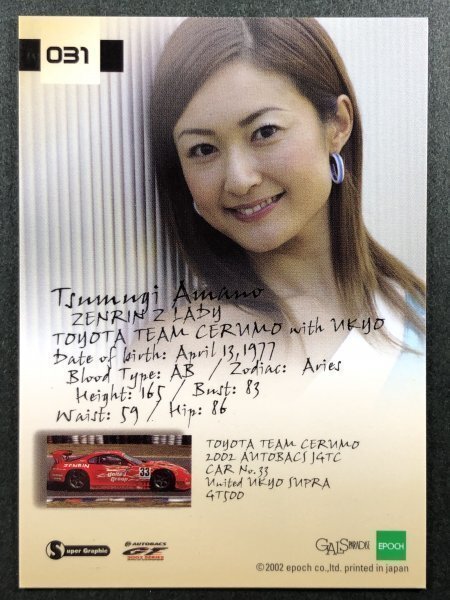 031
Tsumugi Amano
ZENRIN Z LADY
TOYOTA TEAM CERUMO with UKYO
Date of birth: April 13, 1977
Blood Type: AB / Zodiac: Aries
Height: 165 / Bust: 83
Waist: 59 / Hip: 86
ZENRIN
33
TOYOTA TEAM CERUMO
2002 AUTOBACS JGTC
CAR No.33
United UKYO SUPRA
GT500
Super Graphic
AUTOBACS
GT
2002 SERIES
GALS PARADISE
EPOCH
©2002 epoch co.,ltd. printed in japan